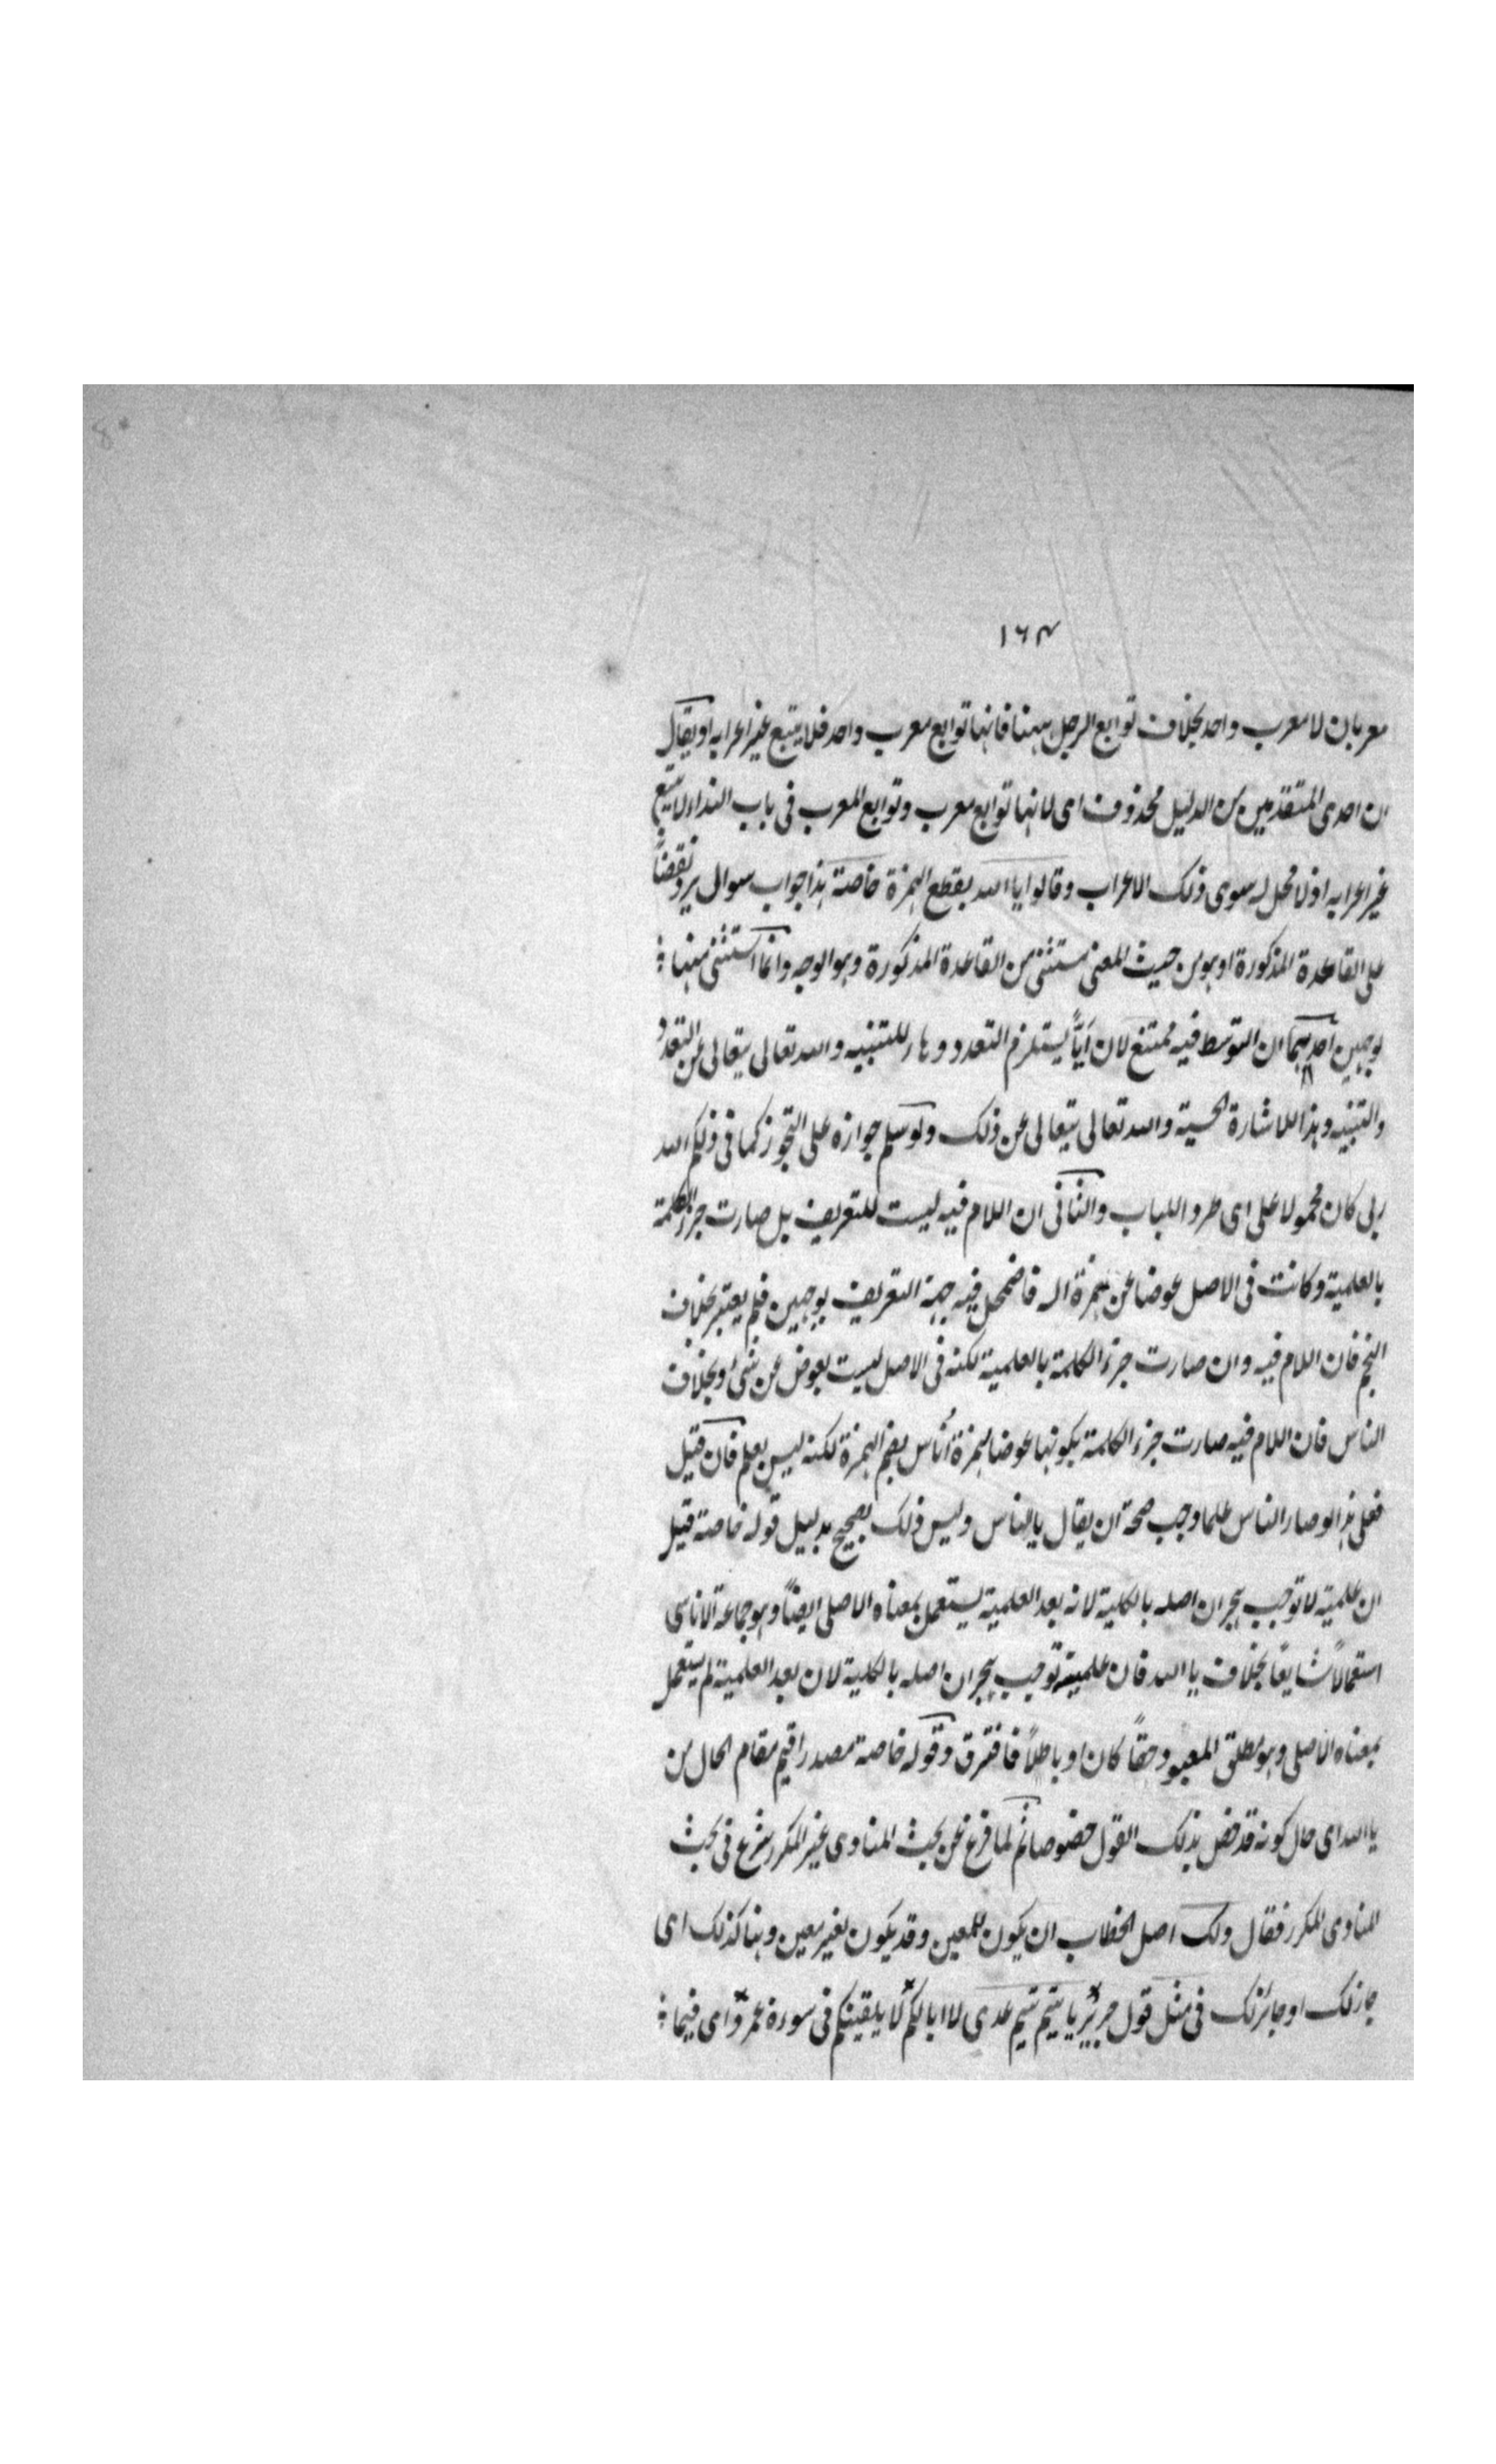 ١٦٣
معربان لا معرب واحد بخلاف توابع الرجل ههنا فانها توابع معرب واحد فلا يتبع غير اعرابه او يقال
ان احدى المتقدمين من الدليل محذوف اى لانها توابع معرب وتوابع المعرب فى باب النداء لا يتبع
غير اعرابه اذ لا محل له سوى ذلك الاعراب وقالوا يا الله بقطع الهمزة خاصة هذا جواب سوال يرد نقضاً
على القاعدة المذكورة او هو من حيث المعنى مستثنى من القاعدة المذكورة وهو الوجه وانما استثنى منها
لوجهين احدهما ان التوسط فيه ممتنع لان ايّاً يستلزم التعدد وها للتنبيه والله تعالى يتعالى عن التعدد
والتنبيه وهذا للاشارة الحسية والله تعالى يتعالى عن ذلك ولو سلم جوازه على التجوز كما فى ذلكم الله
ربى كان محمولا على اى طردا للباب والثانى ان اللام فيه ليست للتعريف بل صارت جزء الكلمة
بالعلمية وكانت فى الاصل عوضا عن همزة اله فاضمحل فيه جهة التعريف بوجهين فلم يعتبر بخلاف
النجم فان اللام فيه وان صارت جزء الكلمة بالعلمية لكنه فى الاصل ليست بعوض عن شئ وبخلاف
الناس فان اللام فيه صارت جزء الكلمة بكونها عوضا لهمزة أناس بضم الهمزة لكنه ليس بعلم فان قيل
فعلى هذا لو صار الناس علما وجب صحة ان يقال يا الناس وليس ذلك بصحيح بدليل قوله خاصة قيل
ان علمية لا توجب هجران اصله بالكلية لانه بعد العلمية يستعمل بمعناه الاصلى ايضاً وهو جماعة الاناسى
استعمالاً شايعًا بخلاف يا الله فان علميته توجب هجران اصله بالكلية لان بعد العلمية لم يستعمل
بمعناه الاصلى وهو مطلق المعبود حقاً كان او باطلاً فافترق وقوله خاصة مصدر اقيم مقام الحال من
يا الله اى حال كونه قد خص بذلك القول خصوصا ثم لما فرغ عن بحث المنادى غير المكرر شرع فى بحث
المنادى المكرر فقال ولك اصل الخطاب ان يكون للمعين وقد يكون لغير معين وهنا كذلك اى
جاز لك او جائز لك فى مثل قول جرير يا تيم تيم عدى لا ابا لكم لا يلقينكم فى سوءة عمر اى فيما